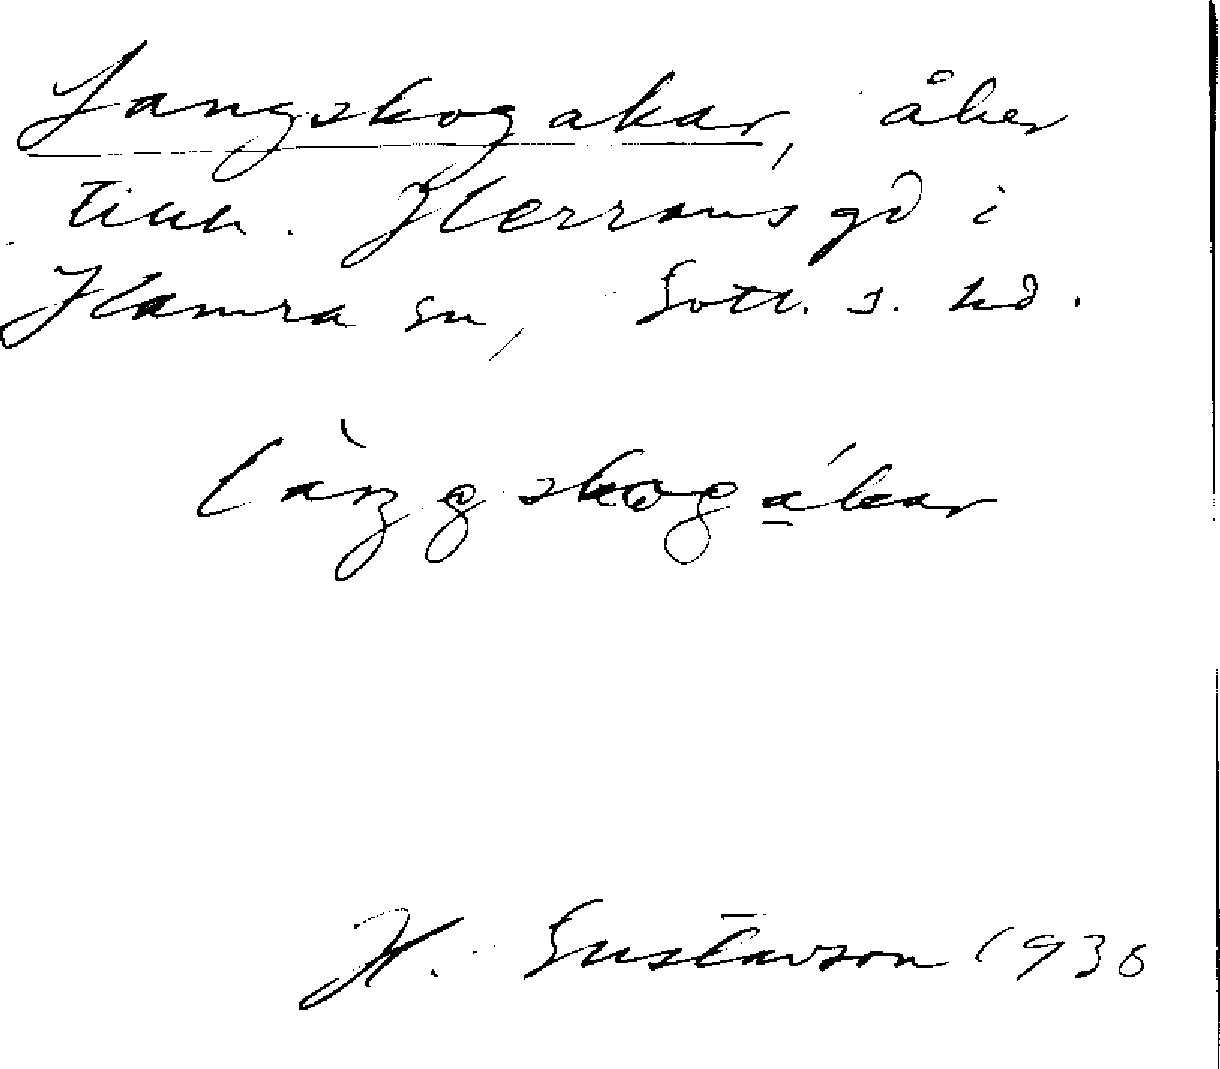 Langskogakar, åker
tillh. Herrans gd i
Hamra sn, Gotl. s. hd.
làŋgskogákar
H. Gustavson 1936